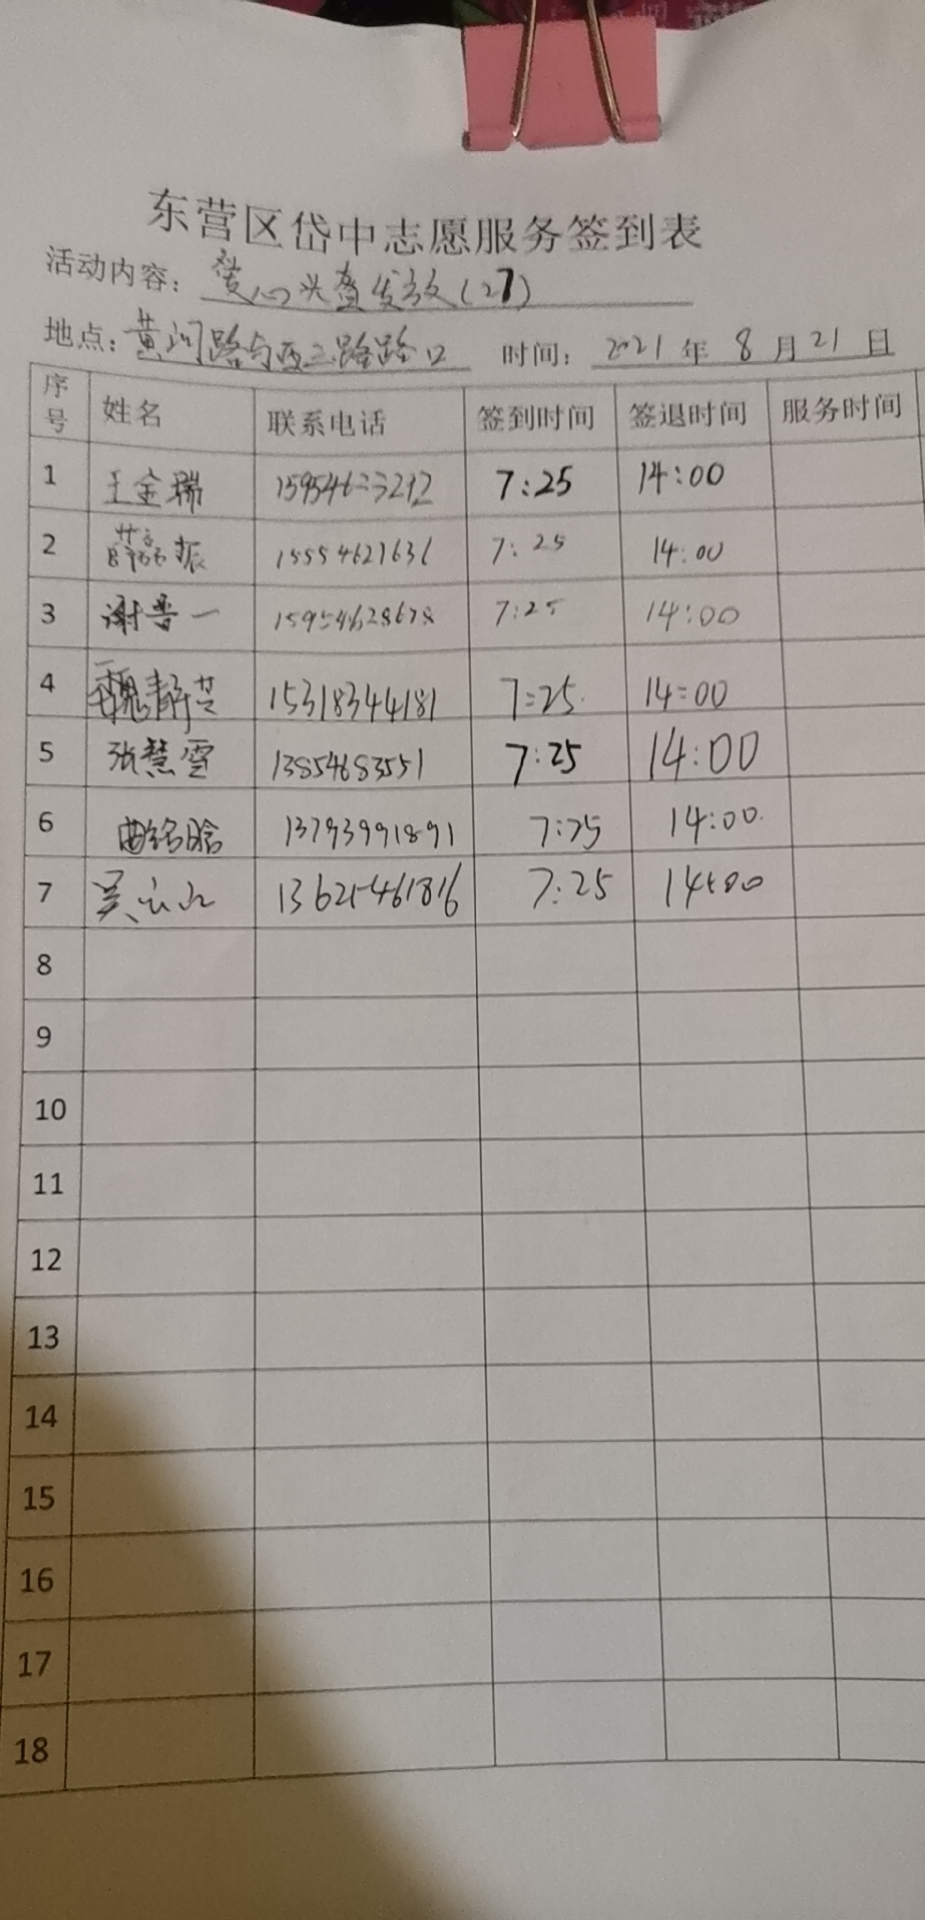 东营区岱中志愿服务签到表
活动内容：爱心头盔发放(27)
地点：黄河路与西二路路口 时间：2021年8月21日
序号 姓名 联系电话 签到时间 签退时间 服务时间
1 王金瑞 15954633212 7:25 14:00
2 振 15554621631 7:25 14:00
3 谢普一 15954628678 7:25 14:00
4 魏静芸 15318344181 7:25 14:00
5 张慧雪 13854683551 7:25 14:00
6 曲铭晗 13793991891 7:25 14:00
7 吴 13621461816 7:25 14:00
8
9
10
11
12
13
14
15
16
17
18